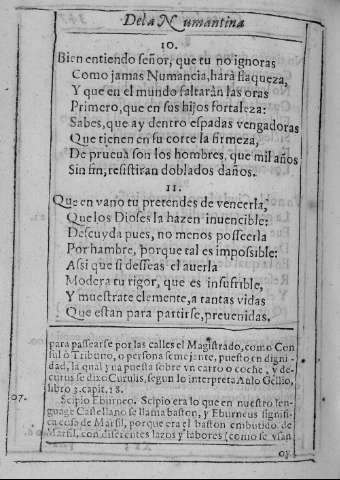 De la Numantina
10.
Bien entiendo señor, que tu no ignoras
Como jamas Numancia, harà flaqueza,
Y que en el mundo faltaràn las oras
Primero, que en sus hijos fortaleza:
Sabes, que ay dentro espadas vengadoras
Que tienen en su corte la firmeza,
De prueua son los hombres, que mil años
Sin fin, resistiran doblados daños.
11.
Que en vano tu pretendes de vencerla,
Que los Dioses la hazen inuencible:
Descuyda pues, no menos posseerla
Por hambre, porque tal es impossible:
Assi que si desseas el auerla
Modera tu rigor, que es insufrible,
Y muestrate clemente, a tantas vidas
Que estan para partirse, preuenidas,
para passearse por las calles el Magistrado, como Con
sul ò Tribuno, o persona semejante, puesto en digni-
dad, la qual yua puesta sobre vn carro o coche, y de
currus se dixo Curulis, segun lo interpreta Aulo Gelio,
libro 3. capit. 18.
07. Scipio Eburneo. Scipio era lo que en nuestro len-
guage Castellano se llama baston, y Eburneus signifi-
ca cosa de Marfil, porque era el baston embutido de
Marfil, con diferentes lazos y labores (como se vsan
oy